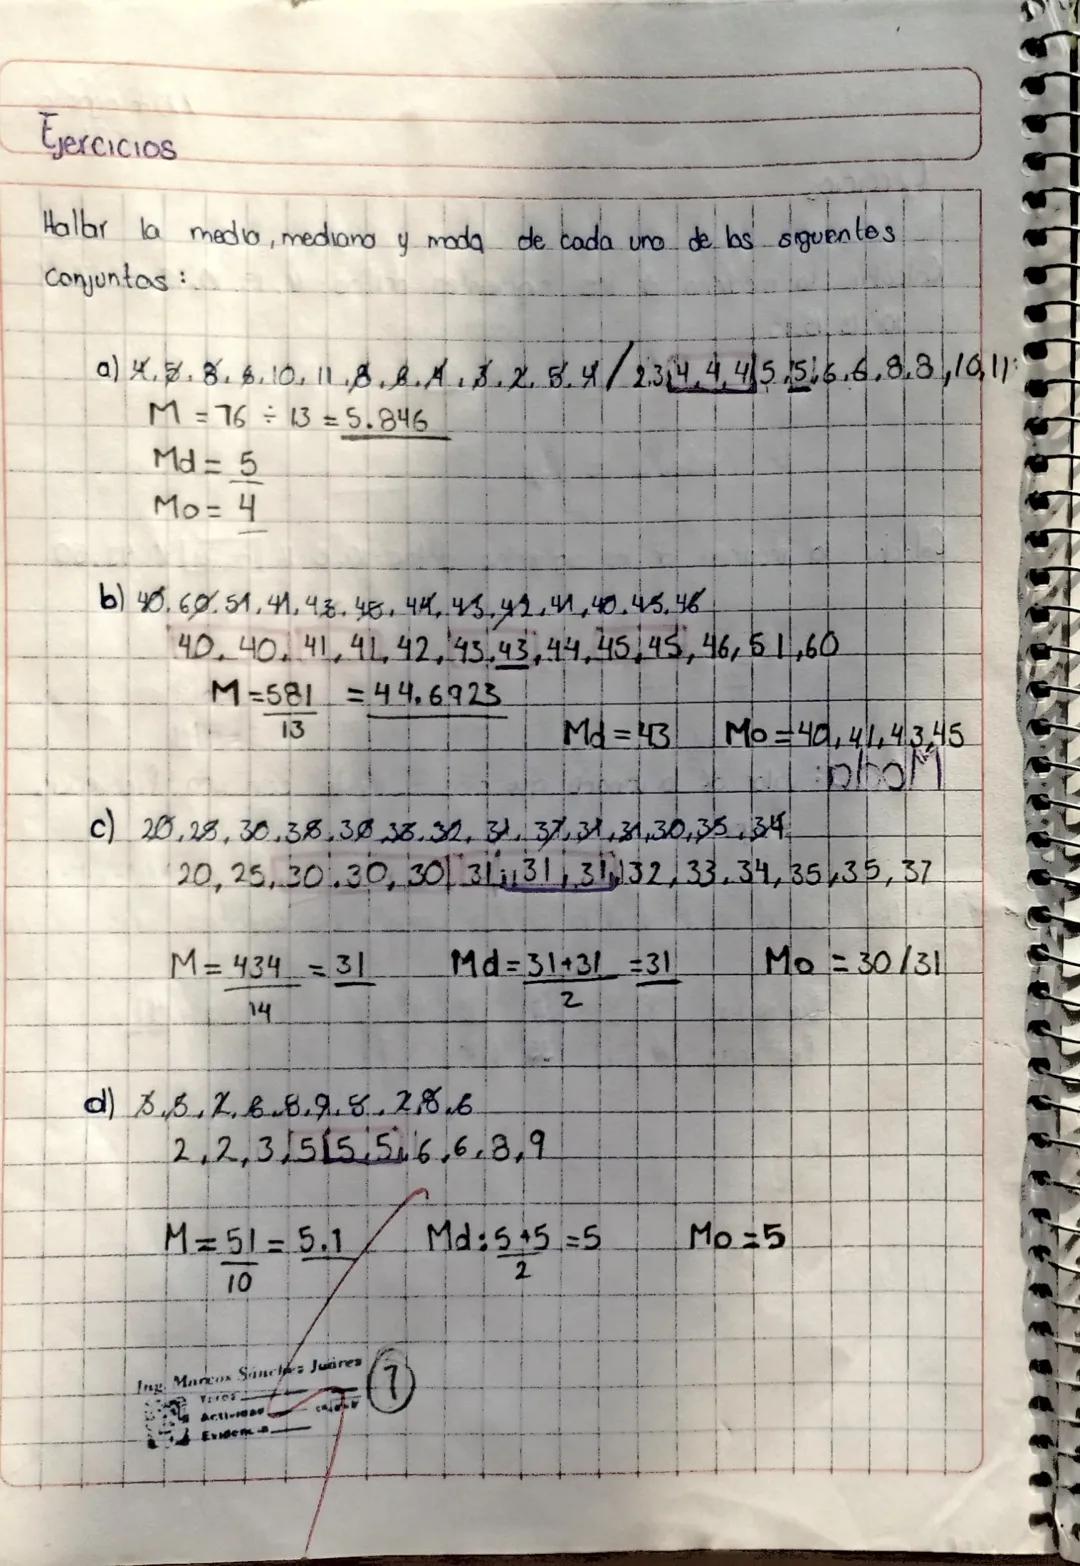 Ejercicios
Hallar la media, mediana y moda de cada uno de los siguientes
conjuntos:
a) 4, 5, 8, 6, 10, 11, 8, 6, 4, 3, 2, 5, 4 / 2,3,4,4,4,5,5,6,6,8,8,10,11
M = 76 ÷ 13 = 5.846
Md = 5
Mo = 4
b) 45, 60, 51, 41, 43, 45, 44, 43, 42, 41, 40, 45, 46
40, 40, 41, 41, 42, 43, 43, 44, 45, 45, 46, 51, 60
M = 581 = 44.6923
13
Md = 43 Mo = 40, 41, 43, 45
Moda
c)
20, 25, 30, 30, 30, 31, 31, 31, 32, 33, 34, 35, 35, 37
M = 434 = 31 Md = 31+31 = 31 Mo = 30/31
14 2
d)
2, 2, 3, 5, 5, 5, 6, 6, 8, 9
M = 51 = 5.1 Md: 5+5 = 5 Mo = 5
10 2
Ing. Marcos Sánchez Juárez
7
Actividad